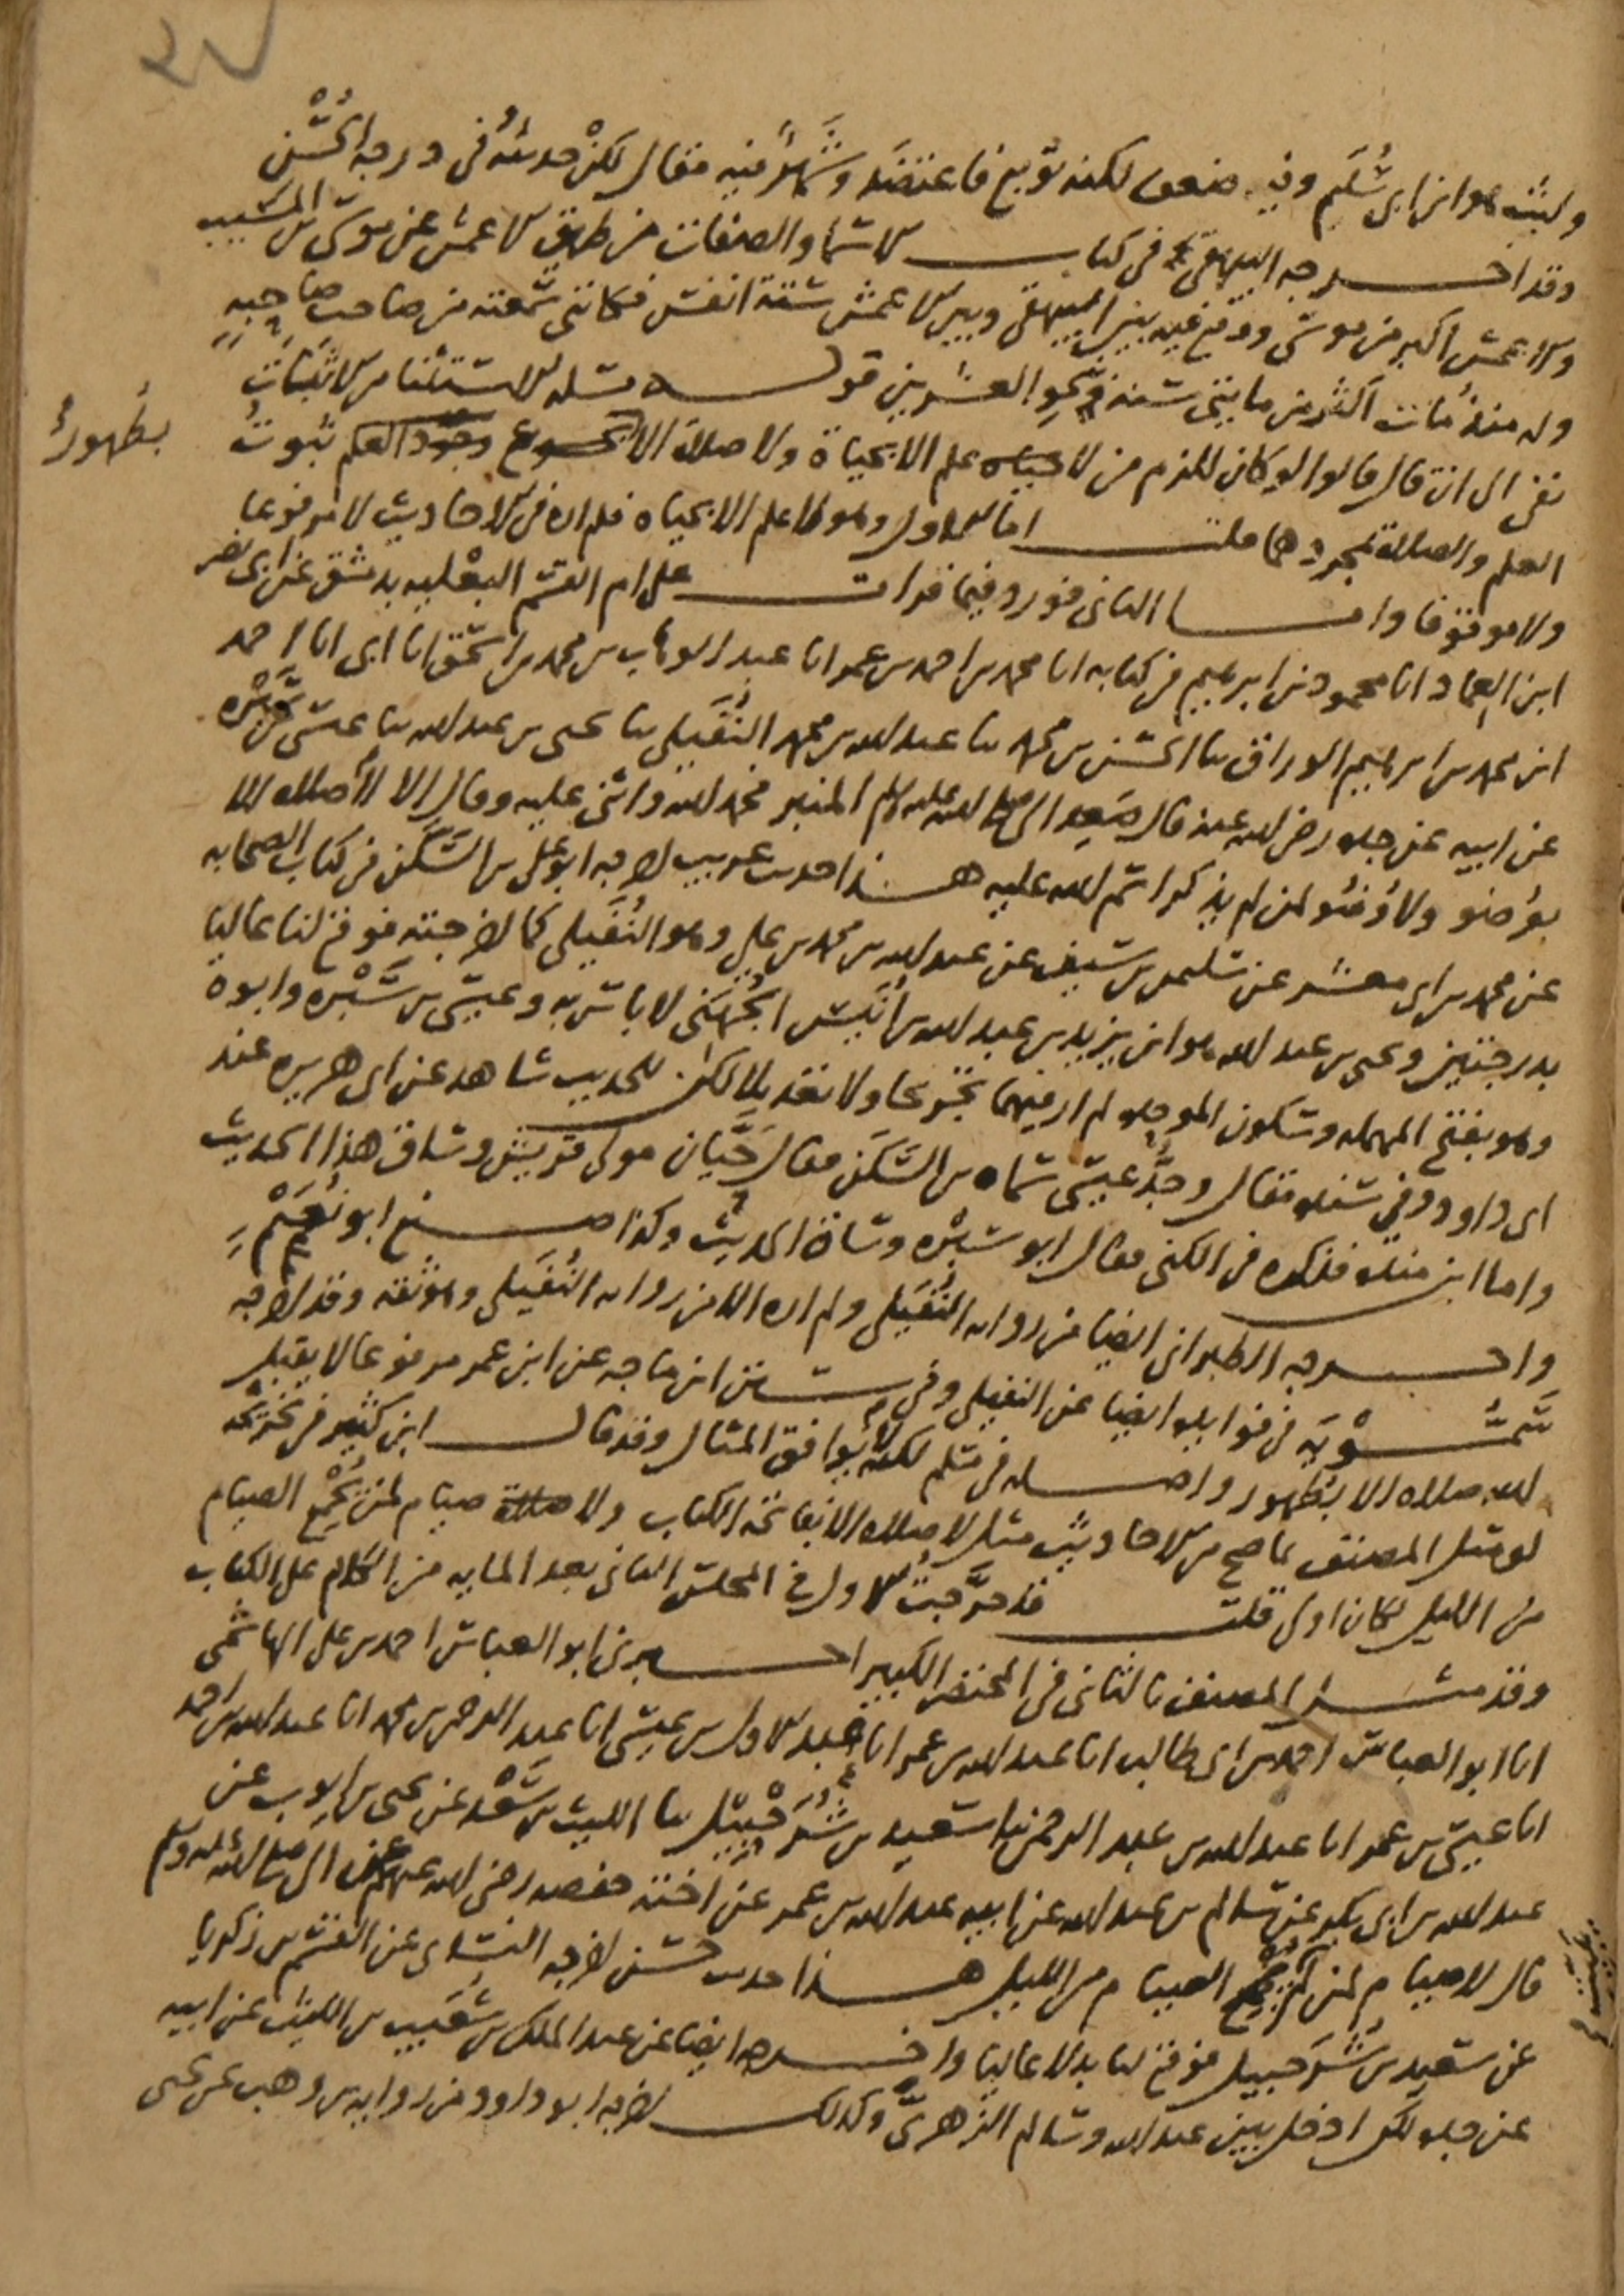 وليث هو ابن ابي سُلَيم وفيه ضعف لكنه توبع فاعتضد وشَهْرٌ فيه مقال لكنْ حديثُه في درجة الحُسْن
وقد اخرجه البيهقي في كتاب الاسما والصفات من طريق الاعمش عن موسى بن المسيب
والاعمش اكبر من موسى ووقع فيه بين البيهقي وبين الاعمش ستة انفس فكانني سمعته من صاحب صاحبه
وله منذ مات اكثر من مايتي سنة بنحو العشرين قوله مسله الاستثنا من الاثبات
نفي الى ان قال قالوا لو كان للزم من لا علم الا بحياة ولا صلاة الا بطهور ثبوت
العلم والصلاة بمجردهما قلت اما الاول وهو لا علم الا بحياه فلم اره في الاحاديث لا مرفوعا
ولا موقوفا واما الثاني فورد فيما قرات على ام القسم البعليه بدمشق عن ابي نصر
ابن العماد انا محمود بن ابرهيم في كتابه انا محمد بن احمد بن عمر انا عبد الوهاب بن محمد بن اسحق انا ابي انا احمد
ابن محمد بن ابرهيم الوراق ثنا الحسن بن محمد ثنا عبد الله بن محمد النُفَيلي ثنا يحيى بن عبد الله ثنا عيسى بن سَبْره
عن ابيه عن جده رضي الله عنه قال صَعِد النبي صلى الله عليه وسلم المنبر فحمد الله واثنى عليه وقال الا لا صلاه الا
بوُضو ولا وُضُو لمن لم يذكر اسم الله عليه هذا حديث غريب اخرجه ابو علي بن السَّكَن في كتاب الصحابه
عن محمد بن ابي معشر عن سليمن بن سيف عن عبد الله بن محمد بن علي وهو النُفَيلي كما اخرجته فوقع لنا عاليا
بدرجتين ويحيى بن عبد الله هو ابن يزيد بن عبد الله بن أُنَيس الجُهَني لا باس به وعيسى بن سَبْره وابوه
وهو بفتح المهمله وسكون الموحده لم ار فيهما تجريحا ولا تعديلا لكن للحديث شاهد عن ابي هريره عند
ابي داوود في سننه فقال وجدُّ عيسى سماه بن السَكَن فقال حَيَّان مولى قريش وساق هذا الحديث
واما ابن منده فذكره في الكنى فقال ابو سبْره وساق الحديث وكذا صنع ابو نُعَيْم
واخرجه الطبراني ايضا من روايه النُفَيلي ولم اره الا من روايه النُفَيلي وهو ثقه وقد اخرجه
سَمُّوْيَه في فوايده ايضا عن النفيلي وفي سنن ابن ماجه عن ابن عمر مرفوعا لا يقبل
الله صلاه الا بطُهور واصله في مسلم لكنه لا يوافق المثال وقد قال ابن كثير في تخريجه
لو مثل المصنف بما صح من الاحاديث مثل لا صلاه الا بفاتحة الكتاب ولا صيام لمن لم يُجْمِع الصيام
من الليل لكان اولى قلت قد خرَّجتُ الاول في المجلس الثاني بعد المايه من الكلام على الكتاب
وقد مثل المصنف بالثاني في المختصر الكبير اخبرني ابو العباس احمد بن علي الهاشمي
انا ابو العباس احمد بن ابي طالب انا عبد الله بن عمر انا عبد الاول بن عيسى انا عبد الرحمن بن محمد انا عبد الله بن احمد
انا عيسى بن عمر انا عبد الله بن عبد الرحمن ثنا سعيد بن شُرَحْبيل ثنا الليث بن سَعْد عن يحيى بن ايوب عن
عبد الله بن ابي بكر عن سالم بن عبد الله عن ابيه عبد الله بن عمر عن اخته حفصه رضي الله عنهم عن النبي صلى الله عليه وسلم
قال لا صيام لمن لم يجمع الصيام من الليل هذا حديث حسن اخرجه النساى عن القسم بن زكريا
عن سعيد بن شُرَحبيل فوقع لنا بدلا عاليا واخرجه ايضا عن عبد الملك بن شُعَيب بن الليث عن ابيه
عن جده لكن ادخل بين عبد الله وسالم الزهريَّ وكذلك اخرجه ابو داوود من روايه بن وهب عن يحيى
بطُهورٍ